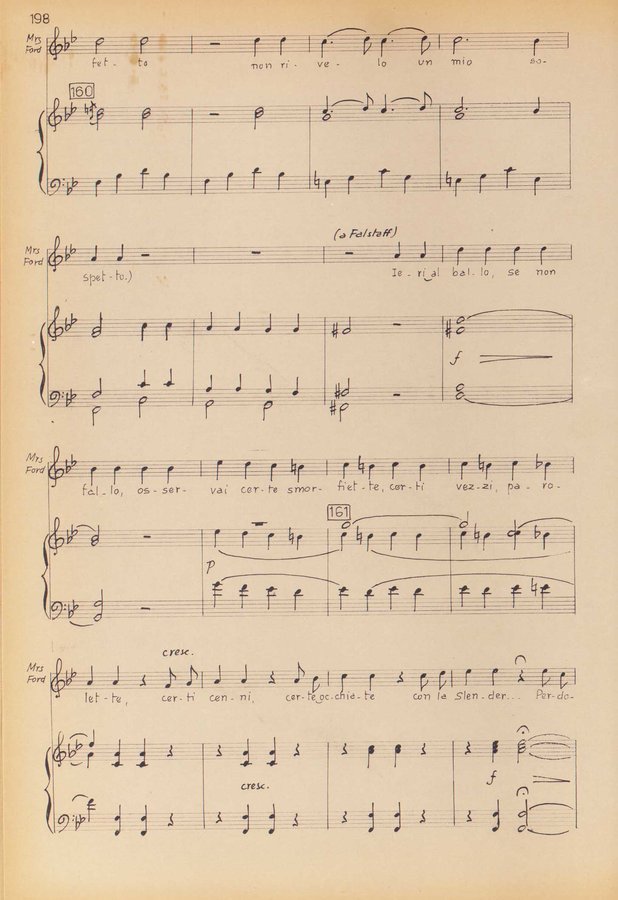 198
Mrs Ford
fet-to non ri-ve-lo un mio so-
160
(a Falstaff)
Mrs Ford
spet-to.) Ie-ri al bal-lo, se non
f
Mrs Ford
fal-lo, os-ser-vai cer-te smor-fiet-te, cer-ti vez-zi, pa-ro-
161
p
cresc.
Mrs Ford
let-te, cer-ti cen-ni, cer-te oc-chia-te con la Slen-der... Per-do-
cresc.
f